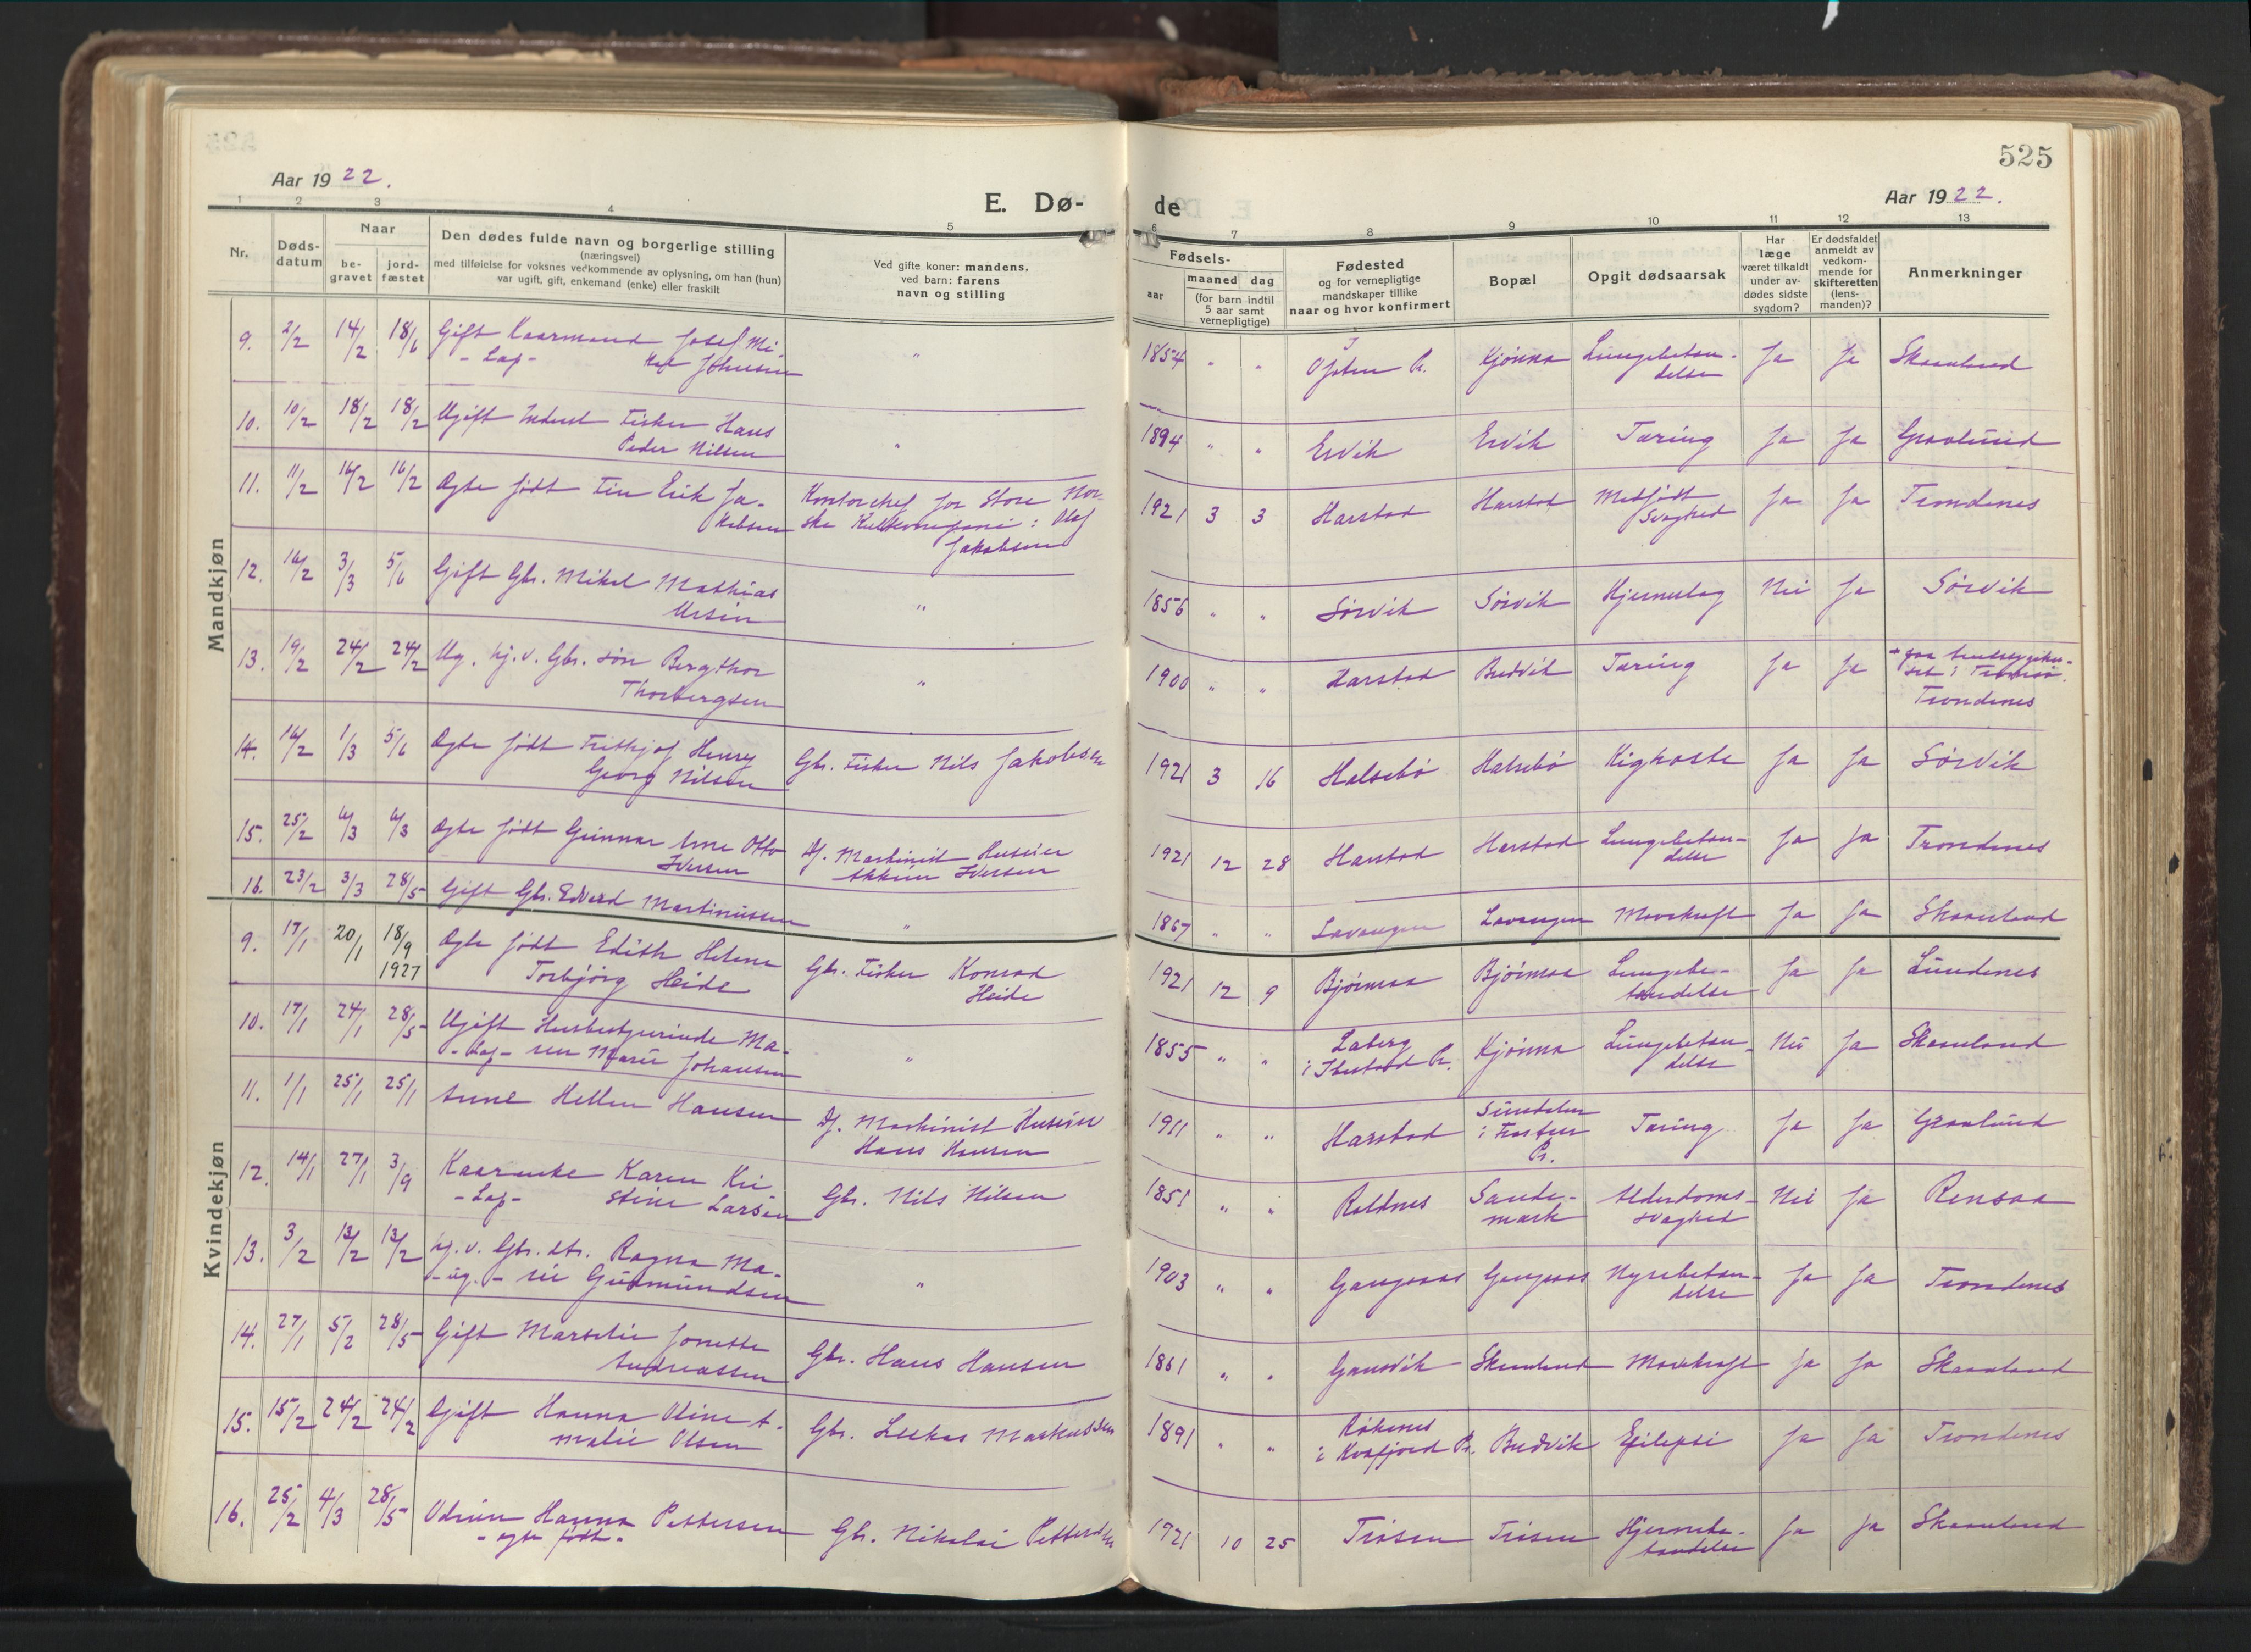 525
Aar 1922.
E. Dø-
de
Aar 1922.
1 2 3 4 5 6 7 8 9 10 11 12 13
Nr.
Døds-
datum
Naar
be-
gravet
jord-
fæstet
Den dødes fulde navn og borgerlige stilling
(næringsvei)
med tilføielse for voksnes vedkommende av oplysning, om han (hun)
var ugift, gift, enkemand (enke) eller fraskilt
Ved gifte koner: mandens,
ved barn: farens
navn og stilling
Fødsels-
aar
maaned dag
(for barn indtil
5 aar samt
vernepligtige)
Fødested
og for vernepligtige
mandskaper tillike
naar og hvor konfirmert
Bopæl
Opgit dødsaarsak
Har
læge
været tilkaldt
under av-
dødes sidste
sygdom?
Er dødsfaldet
anmeldt av
vedkom-
mende for
skifteretten
(lens-
manden)?
Anmerkninger
Mandkjøn
9. 2/2 14/2 18/6 Gift Kaarmand Josef Mi-
- Lap - kal Johnsen
" 1854 " " Ofoten P. Kjønna Lungebetæn-
delse Ja Ja Skaanland
10. 10/2 18/2 18/2 Ugift Inderst Fisker Hans
Peder Nilsen
" 1894 " " Ervik Ervik Tæring Ja Ja Graalund
11. 11/2 16/2 16/2 Ægte født Finn Erik Ja-
kobsen
Kontorchef for Store Nor-
ske Kulkompani: Olaf
Jakobsen
1921 3 3 Harstad Harstad Medfødt
Svaghed Ja Ja Trondenes
12. 16/2 3/3 5/6 Gift Gbr. Mikal Mathias
Ursin
" 1856 " " Sørvik Sørvik Hjerneslag Nei Ja Sørvik
13. 19/2 24/2 24/2 Ug. hj.v. Gbr. søn Bergthor
Thorbergsen
" 1900 " " Harstad Budvik Tæring Ja Ja
set i Tromsø.
Trondenes
14. 16/2 1/3 5/6 Ægte født Frithjof Henry
Georg Nilsen
Gbr. Fisker Nils Jakobsen
1921 3 16 Halsebø Halsebø Kighoste Ja Ja Sørvik
15. 25/2 4/3 4/3 Ægte født Gunnar Arne Otto
Iversen
Df. Maskinist Huseier
Iversen
1921 12 28 Harstad Harstad Lungebetæn-
delse Ja Ja Trondenes
16. 23/2 3/3 28/5 Gift Gbr. Edvard Martinussen
" 1867 " " Lavangen Lavangen Mavekræft Ja Ja Skaanland
Kvindekjøn
9. 17/1 20/1 18/9
1927 Ægte født Edith Helene
Torbjørg Heide
Gbr. Fisker Konrad
Heide
1921 12 9 Bjørnraa Bjørnraa Lungebe-
tændelse Ja Ja Lundenes
10. 17/1 24/1 28/5 Ugift Husbestyrerinde Ma-
- Lap - ren Marie Johansen
" 1855 " " Laberg
i Ibestad P. Kjønna Lungebetæn-
delse Nei Ja Skaanland
11. 1/1 25/1 25/1 Anne Hellen Hansen
Df. Maskinist Huseier
Hans Hansen
1911 " " Harstad
P. Tæring Ja Ja Graalund
12. 14/1 27/1 3/9 Kaarenke Karen Kri-
- Lap - stine Larsen
Gbr. Nils Nilsen
1851 " " Roldnes Sande-
mark Alderdoms-
svaghed Nei Ja Rensaa
13. 3/2 13/2 13/2 hj.v. Gbr. dtr. Ragna Ma-
- ug. - rie Gudmundsen
" 1903 " " Gangsaas Gangsaas Nyrebetæn-
delse Ja Ja Trondenes
14. 27/1 5/2 28/5 Gift Marselie Jonette
Andreassen
Gbr. Hans Hansen
1861 " " Gausvik Skaanland Mavekræft Ja Ja Skaanland
15. 15/2 24/2 24/2 Gift Hanna Oline A-
malie Olsen
Gbr. Markussen
1891 " " Røkenes
i Kvæfjord P. Budvik Epilepsi Ja Ja Trondenes
16. 25/2 4/3 28/5 Hanna Pettersen
- ægte født -
Gbr. Nikolai Pettersen
1921 10 25 Trøsen Trøsen Hjernebe-
tændelse Ja Ja Skaanland